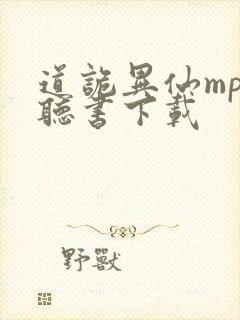 道詭異仙mp
聽書下載
野獸